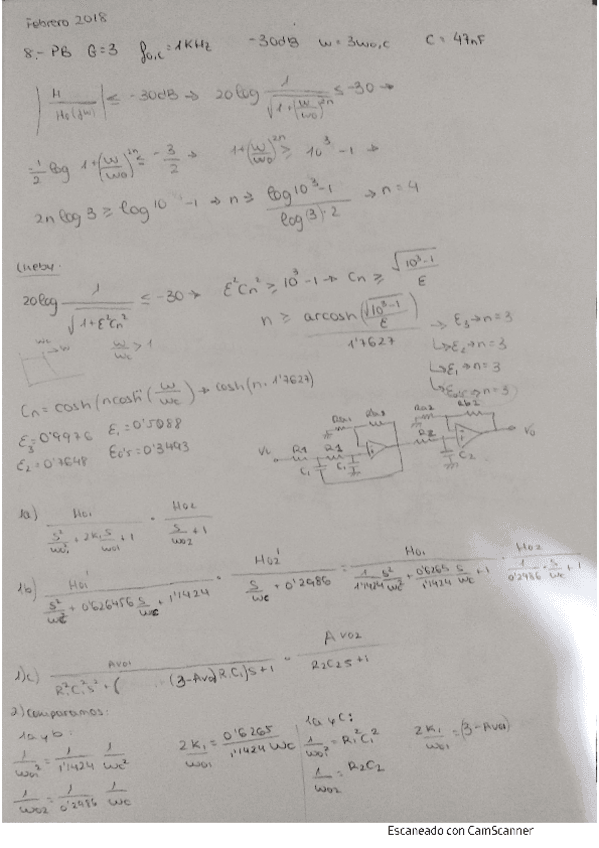 Febrero 2018
8.- PB G=3 f₀,c = 1KHz -30dB w = 3w₀,c C = 47nF
|H / H₀(jw)| ≤ -30dB → 20log 1/√(1+(w/w₀)^2n) ≤ -30 →
-1/2 log 1+(w/w₀)^2n ≤ -3/2 → 1+(w/w₀)^2n ≥ 10³-1 →
2n log 3 ≥ log 10 -1 → n ≥ (log 10³-1)/(log(3)·2) → n = 4
20log 1/√(1+ε²Cn²) ≤ -30 → ε²Cn² ≥ 10³-1 → Cn ≥ √(10³-1)/ε
wc → w w/wc > 1 n ≥ arcosh(√(10³-1)/ε)/1'7627 → ε₃ → n=3
↳ ε₂ → n=3
↳ ε₁ → n=3
↳ ε₀'₅ → n=3
Cn = cosh(n cosh⁻¹(w/wc) → cosh(n·1'7627)
ε₃ = 0'9976 ε₁ = 0'5088
ε₂ = 0'7648 ε₀'₅ = 0'3493
Ra1 Rb1 Ra2 Rb2
Vi R1 R1 C1 C1 R2 C2 Vo
1a) H01/(s²/w01² + 2K1 s/w01 + 1) · H02/(s/w02 + 1)
1b) H01'/(s²/wc² + 0'626456 s/wc + 1'1424) · H02'/(s/wc + 0'2986) = H01/(1/1'1424 s²/wc² + 0'6265/1'1424 s/wc + 1) · H02/(1/0'2986 · s/wc + 1)
1)c) Av01/(R1²C1²s² + ( (3-Av01)R1C1)s+1 · Av02/(R2C2s+1)
2) comparamos:
1a y b: 1a y C:
1/w01² = 1/1'1424 1/wc² 2K1/w01 = 0'6265/1'1424 wc 1/w01² = R1²C1² 2K1/w01 = (3-Av01)
1/w02 = 1/0'2986 1/wc 1/w02 = R2C2
Escaneado con CamScanner